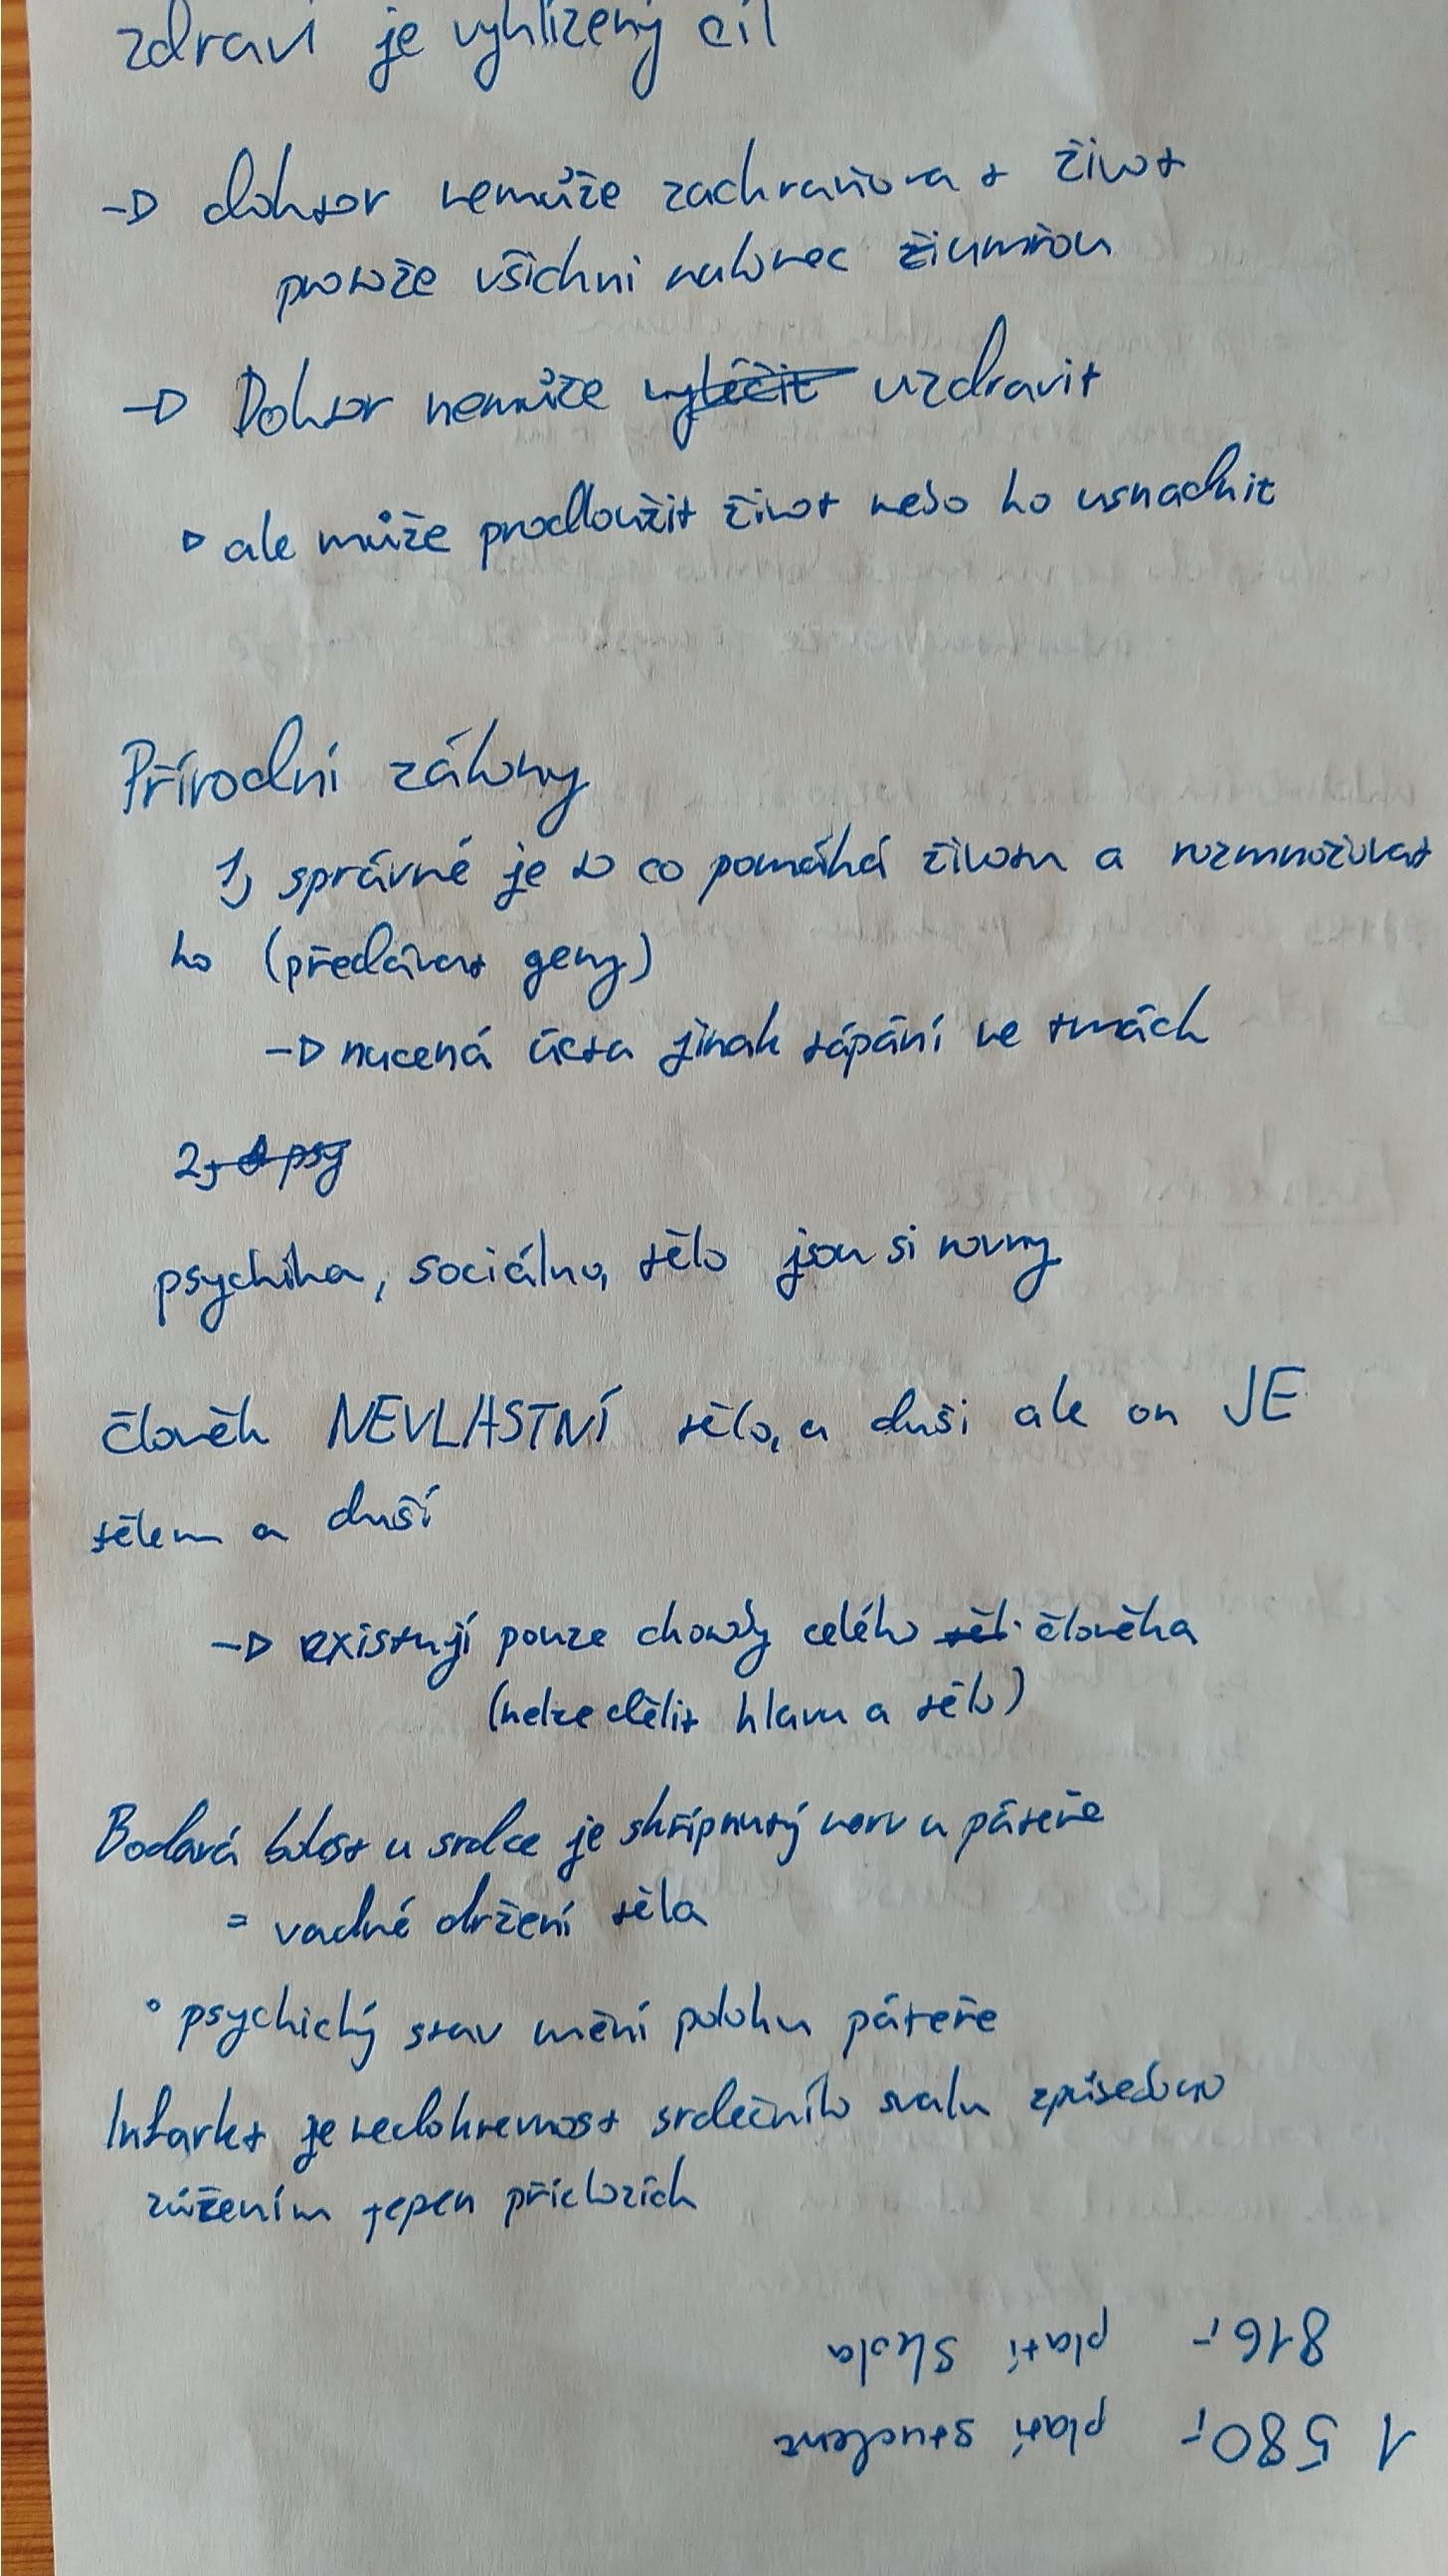 zdraví je vyhlížený cíl
→ doktor nemůže zachraňovat život
protože všichni nakonec umřou
→ Doktor nemůže vyléčit uzdravit
▹ ale může prodloužit život nebo ho usnadnit
Přírodní zákony
1, správné je to co pomáhá životu a rozmnožovat
ho (předávat geny)
→ nucená úcta jinak tápání ve tmách
2, psy
psychika, sociálno, tělo jsou si rovny
člověk NEVLASTNÍ tělo, a duši ale on JE
tělem a duší
→ existují pouze choroby celého těl člověka
(nelze dělit hlavu a tělo)
Bodavá bolest u srdce je skřípnutý nerv u páteře
= vadné držení těla
° psychický stav mění polohu páteře
Infarkt je nedokrevnost srdečního svalu způsobeno
zúžením tepen příchozích
1 580,- platí student
816,- platí škola